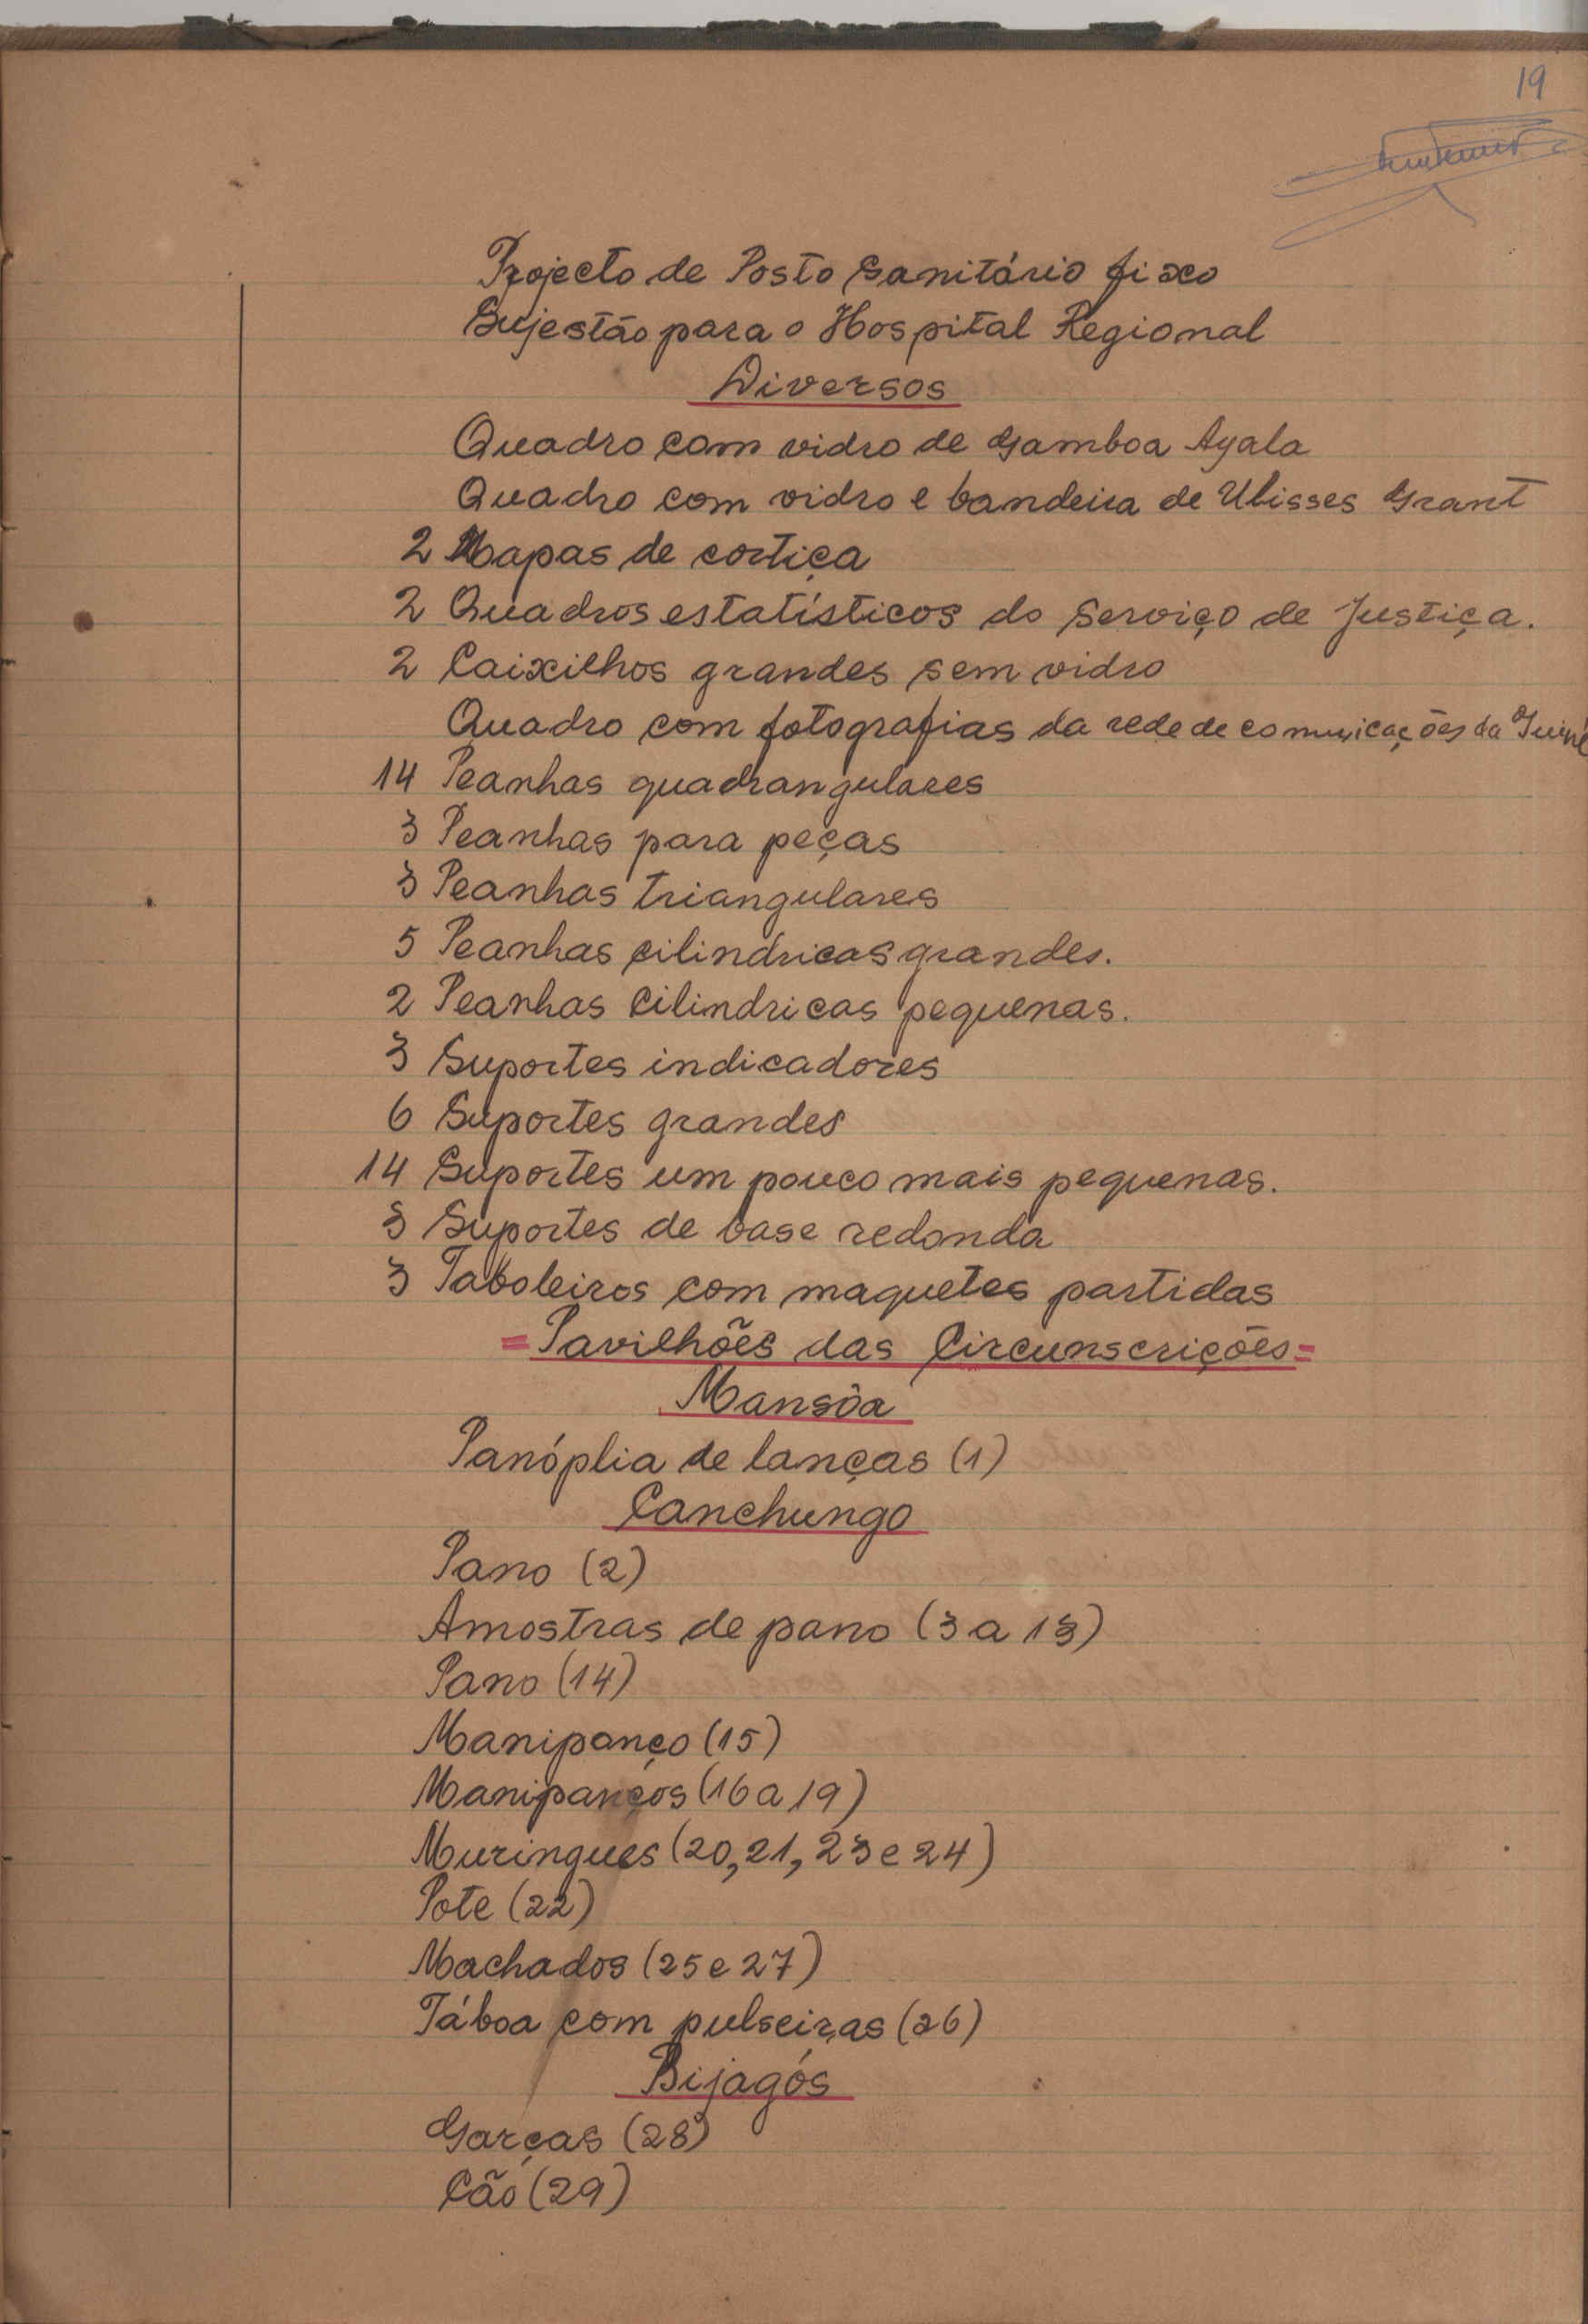 19
Projecto de Posto Sanitário fixo
Sujestão para o Hospital Regional
Diversos
Quadro com vidro de Gamboa Ayala
Quadro com vidro e bandeira de Ulisses Grant
2 Mapas de cortiça
2 Quadros estatísticos do Serviço de Justiça.
2 Caixilhos grandes sem vidro
Quadro com fotografias da rede de comunicações da Guiné
14 Peanhas quadrangulares
3 Peanhas para peças
3 Peanhas triangulares
5 Peanhas cilindricas grandes.
2 Peanhas cilindricas pequenas.
3 Suportes indicadores
6 Suportes grandes
14 Suportes um pouco mais pequenas.
3 Suportes de base redonda
3 Taboleiros com maquetes partidas
= Pavilhões das Circunscrições =
Mansôa
Panóplia de lanças (1)
Canchungo
Pano (2)
Amostras de pano (3 a 13)
Pano (14)
Manipanço (15)
Manipanços (16 a 19)
Muringues (20, 21, 23 e 24)
Pote (22)
Machados (25 e 27)
Táboa com pulseiras (26)
Bijagós
Garças (28)
Cão (29)